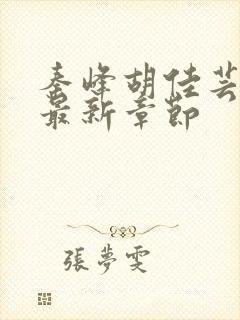 秦峰胡佳芸
最新章節
張夢雯